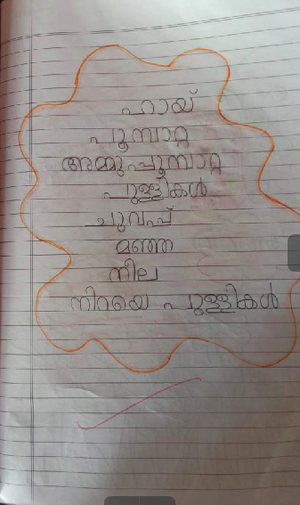 ഹായ്
പൂമ്പാറ്റ
അമ്മുപ്പൂമ്പാറ്റ
പുള്ളികൾ
ചുവപ്പ്
മഞ്ഞ
നില
നിറയെ പുള്ളികൾ